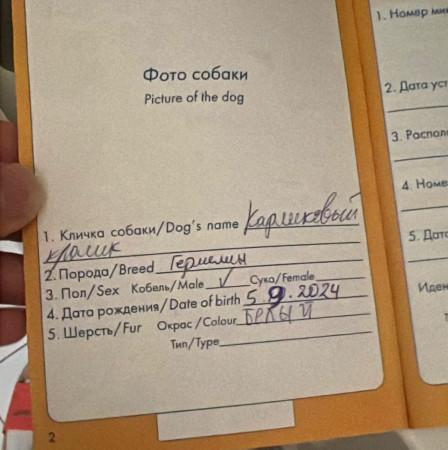 Фото собаки
Picture of the dog
1. Кличка собаки/Dog's name Карликовый
кролик
2. Порода/Breed Гермелин
3. Пол/Sex Кобель/Male ✓ Сука/Female
4. Дата рождения/Date of birth 5.9.2024
5. Шерсть/Fur Окрас/Colour БЕЛЫЙ
Тип/Type
2
1. Номер
2. Дата
3.
4.
5.